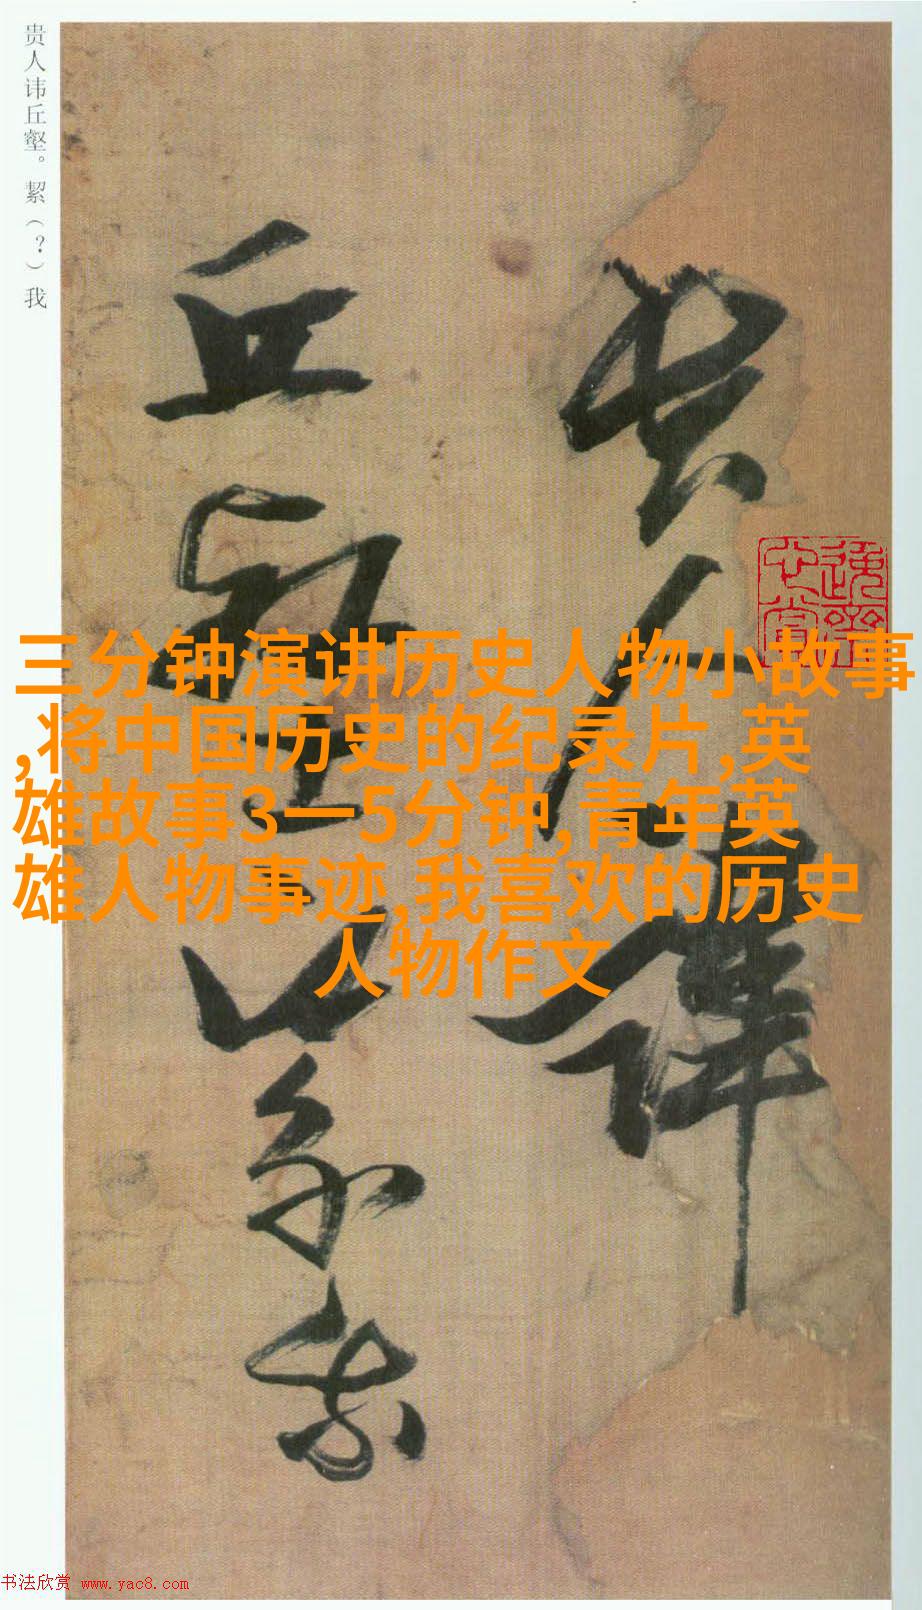 贵人讳丘壑。絜（？）我
贵人讳
丘壑
絜我
三分钟演讲历史人物小故事
,将中国历史的纪录片,英
雄故事3一5分钟,青年英
雄人物事迹,我喜欢的历史
人物作文
书法欣赏 www.yac8.com